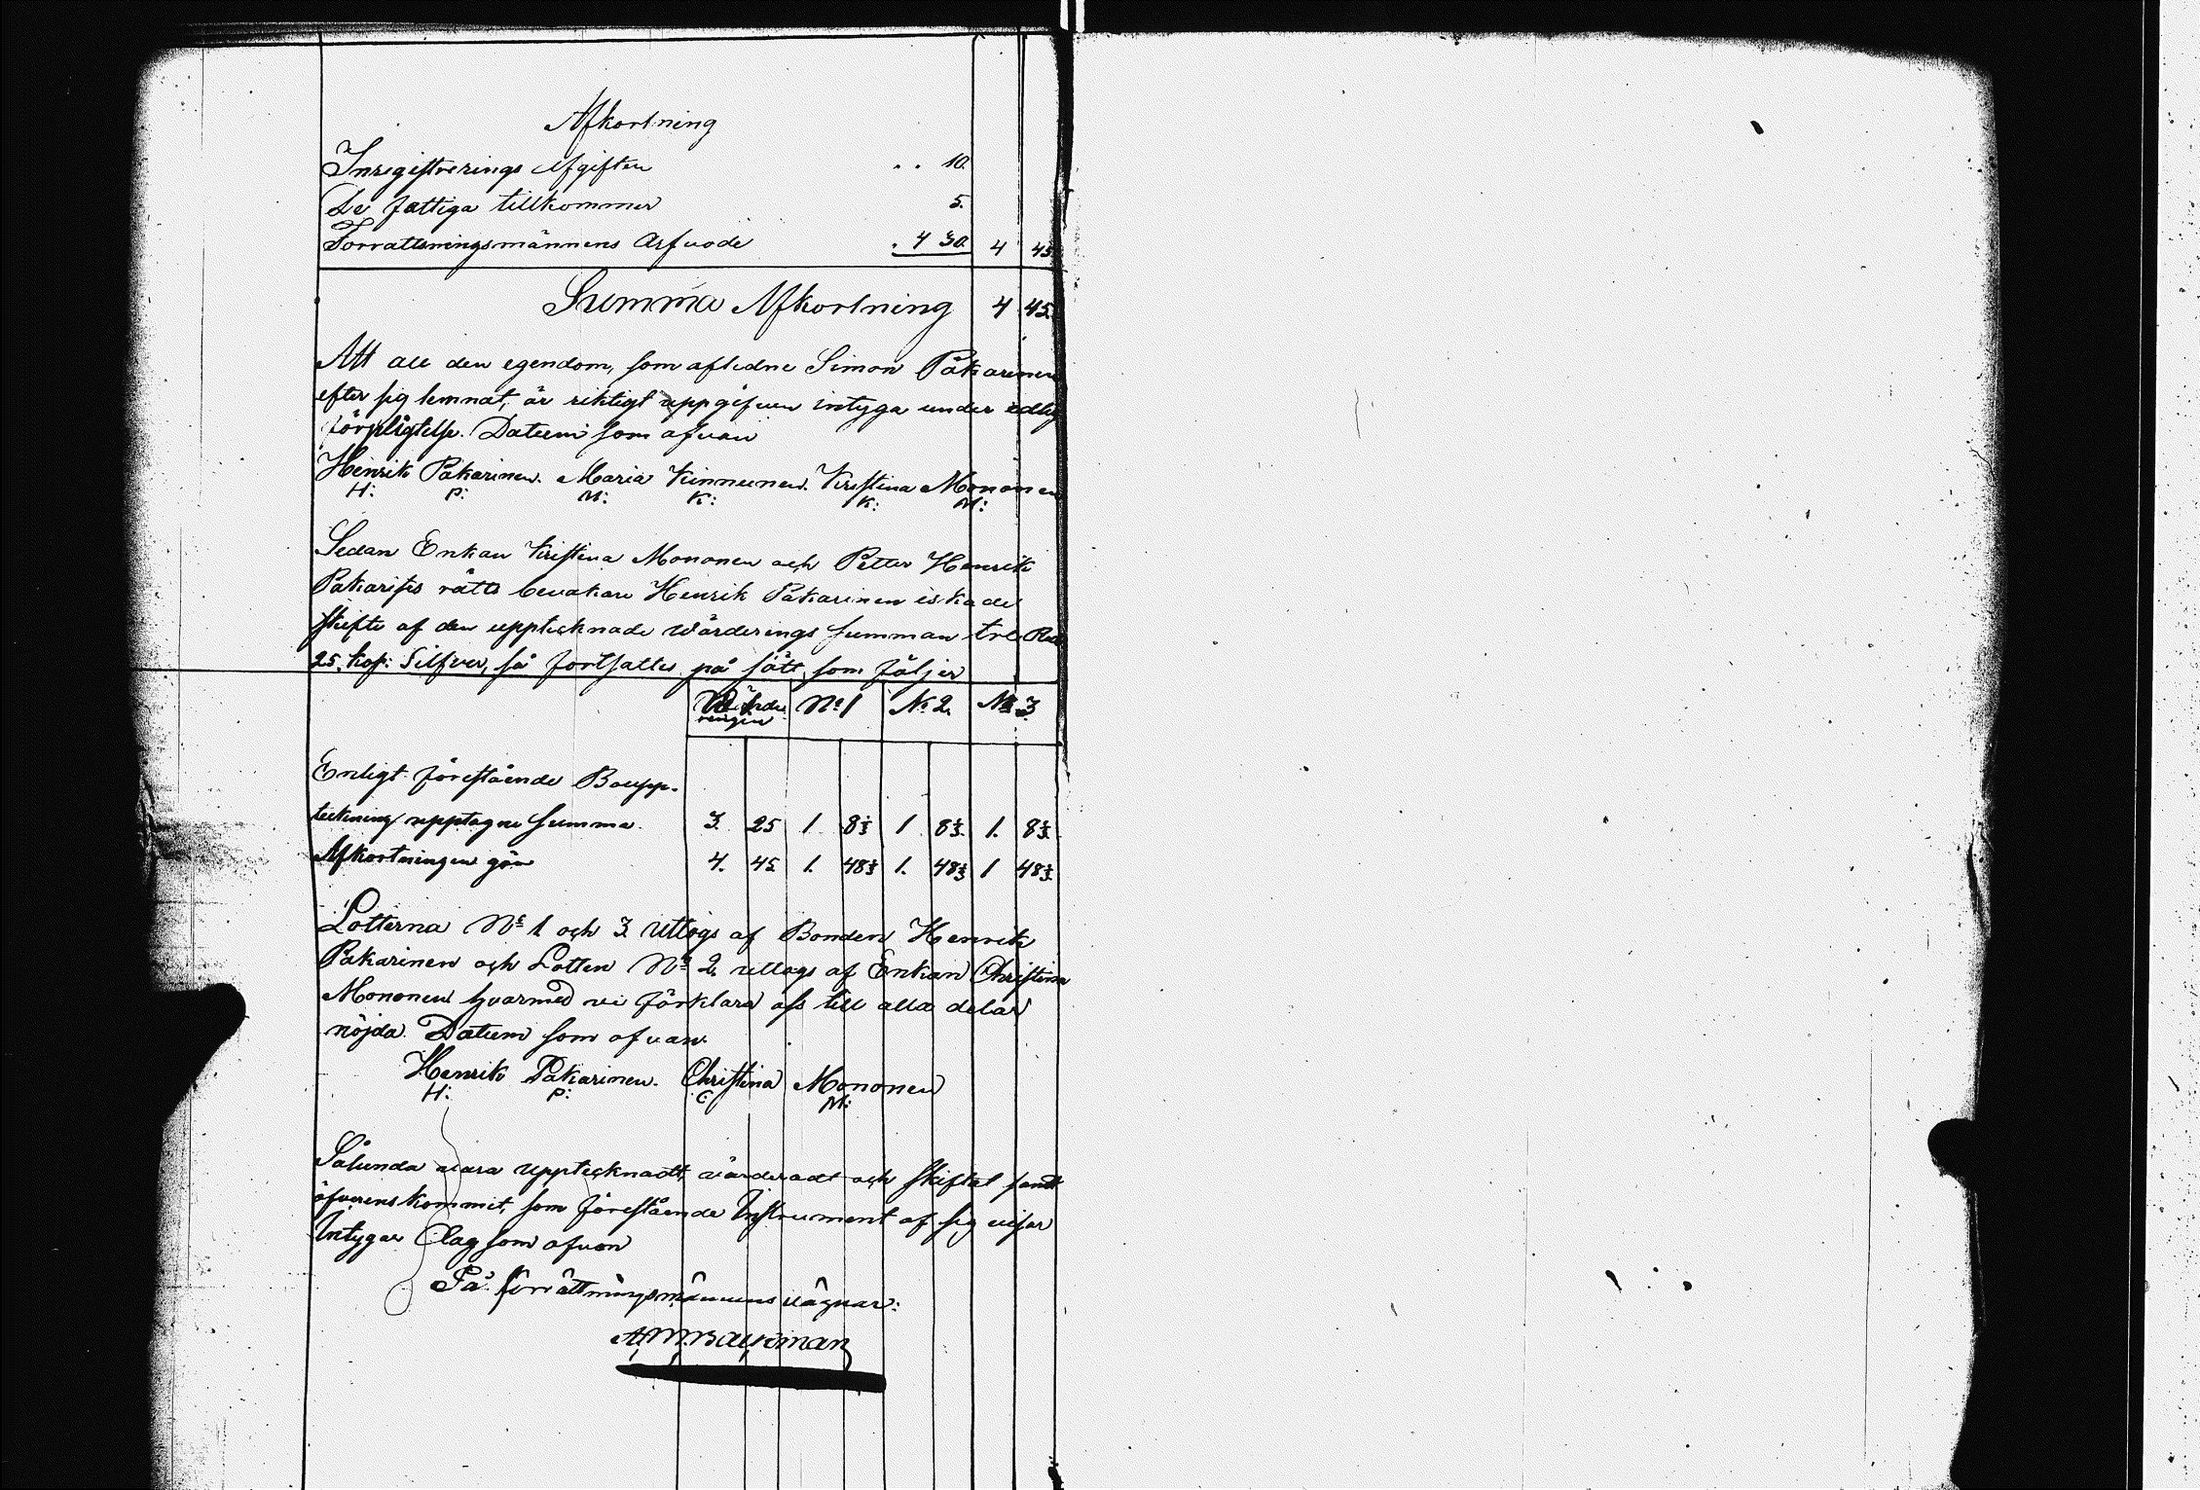 Afkortning
Inregistrerings Afgiften . . 10.
De fattiga tillkommer 5.
Förrattningsmännens Arfvode . 4 30. 4 45.
Summa Afkortning 4 45.
Att all den egendom, som aflidne Simon Pakarinen
efter sig lemnat, är riktigt uppgifven intyga under edlig
förpligtelse. Datum som ofvan
Henrik Pakarinen. Maria Kinnunen. Kristina Mononen
H: P: M: K: K: M:
Sedan Enkan Kristina Mononen och Petter Henrik
Pakarises rätts bevakare Henrik Pakarinen eskade
skifte af den upptecknade värderings summan tre Rub
25. kop: Silfver, så fortsattes på sätt som följer
Värde N:o 1 N:o 2. N:o 3
ringen
Enligt förestående Boupp-
teckning upptagne summa. 3. 25 1. 8⅓ 1 8⅓. 1. 8⅓.
Afkortningen gör 4. 45 1. 48⅓ 1. 48⅓ 1 48⅓.
Lotterna N:o 1 och 3 uttogs af Bonden Henrik
Pakarinen och Lotten N:o 2 uttogs af Enkan Christina
Mononen hvarmed vi förklara oss till alla delar
nöjda. Datum som ofvan.
Henrik Pakarinen. Christina Mononen
H: P: C: M:
Sålunda vara upptecknadt, värderadt och skiftat samt
öfverenskommit, som förestående Instrument af sig visar
Intygar Dag som ofvan
På förrättningsmännens vägnar: